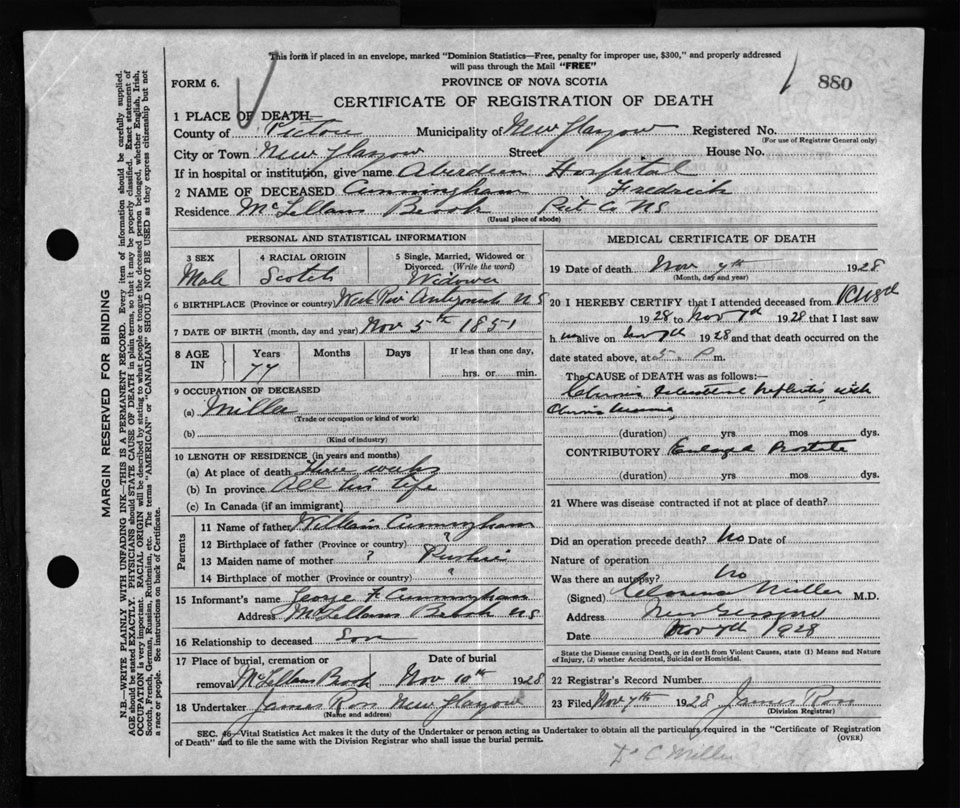 This form if placed in an envelope, marked "Dominion Statistics—Free, penalty for improper use, $300," and properly addressed
will pass through the Mail "FREE"
FORM 6.
PROVINCE OF NOVA SCOTIA
880
CERTIFICATE OF REGISTRATION OF DEATH
1 PLACE OF DEATH—
County of Pictou Municipality of New Glasgow Registered No.
(For use of Registrar General only)
City or Town New Glasgow Street House No.
If in hospital or institution, give name Aberdeen Hospital
2 NAME OF DECEASED Cunningham Fredrick
Residence McLellans Brook Pict Co NS
(Usual place of abode)
PERSONAL AND STATISTICAL INFORMATION
3 SEX
Male
4 RACIAL ORIGIN
Scotch
5 Single, Married, Widowed or
Divorced. (Write the word)
Widower
6 BIRTHPLACE (Province or country) West River Antigonish NS
7 DATE OF BIRTH (month, day and year) Nov 5th 1851
8 AGE IN
Years Months Days If less than one day,
77 hrs. or min.
9 OCCUPATION OF DECEASED
(a) Miller
(Trade or occupation or kind of work)
(b)
(Kind of industry)
10 LENGTH OF RESIDENCE (in years and months)
(a) At place of death Three weeks
(b) In province All his life
(c) In Canada (if an immigrant)
Parents
11 Name of father William Cunningham
12 Birthplace of father (Province or country) "
13 Maiden name of mother ?
14 Birthplace of mother (Province or country) "
15 Informant's name George F Cunningham
Address McLellans Brook NS
16 Relationship to deceased Son
17 Place of burial, cremation or Date of burial
removal McLellans Brook Nov 10th 1928
18 Undertaker James Ross New Glasgow
(Name and address)
MEDICAL CERTIFICATE OF DEATH
19 Date of death Nov 7th 1928
(Month, day and year)
20 I HEREBY CERTIFY that I attended deceased from
1928 to Nov 7th 1928 that I last saw
him alive on Nov 7th 1928 and that death occurred on the
date stated above, at 5 P m.
The CAUSE OF DEATH was as follows:—
Chronic Interstitial Nephritis with
Chronic Uraemia
(duration) yrs mos dys.
CONTRIBUTORY Enlarged Prostate
(duration) yrs mos dys.
21 Where was disease contracted if not at place of death?
Did an operation precede death? No Date of
Nature of operation
Was there an autopsy? No
(Signed) Clarence Miller M.D.
Address New Glasgow
Date Nov 7th 1928
State the Disease causing Death, or in death from Violent Causes, state (1) Means and Nature
of Injury, (2) whether Accidental, Suicidal or Homicidal.
22 Registrar's Record Number
23 Filed Nov 7th 1928 James Ross
(Division Registrar)
SEC. 46—Vital Statistics Act makes it the duty of the Undertaker or person acting as Undertaker to obtain all the particulars required in the "Certificate of Registration
of Death" and to file the same with the Division Registrar who shall issue the burial permit.
(OVER)
Dr C Miller
MARGIN RESERVED FOR BINDING
N.B.—WRITE PLAINLY WITH UNFADING INK—THIS IS A PERMANENT RECORD. Every item of information should be carefully supplied.
AGE should be stated EXACTLY. PHYSICIANS should STATE CAUSE OF DEATH in plain terms, so that it may be properly classified. Exact statement of
OCCUPATION is very important. RACIAL ORIGIN will be described by stating to what people or tongue the deceased person belonged, whether English, Irish,
Scotch, French, German, Russian, Ruthenian, etc. The terms "AMERICAN" or "CANADIAN" SHOULD NOT BE USED as they express citizenship but not
a race or people. See instructions on back of Certificate.